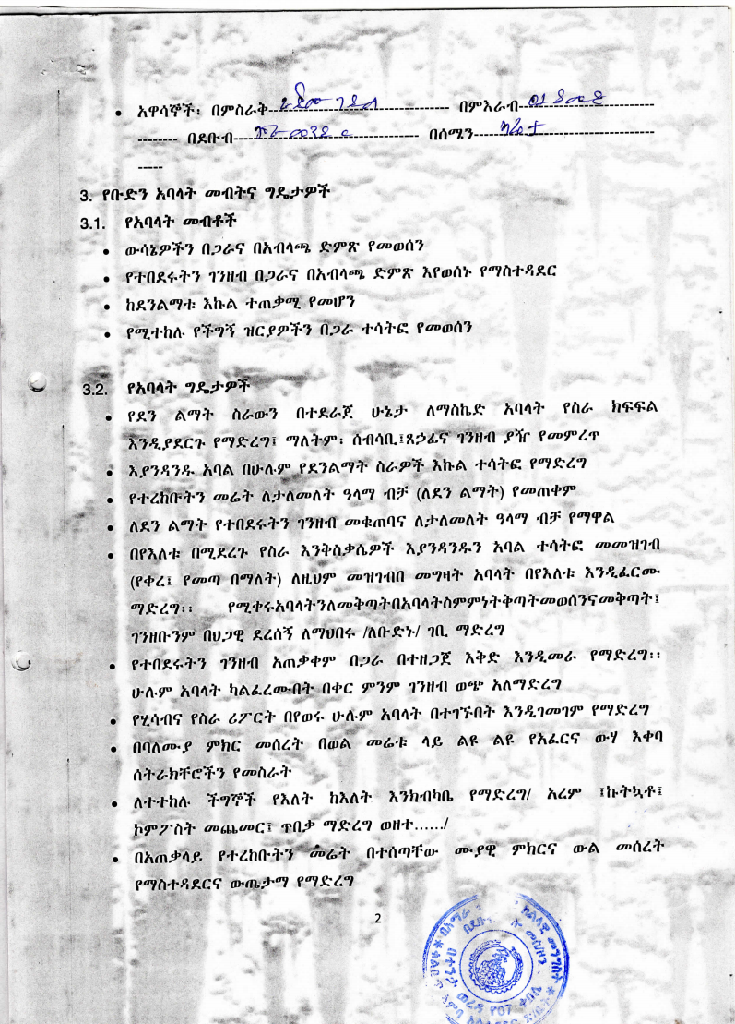 • አዋሳኞች፡ በምስራቅ በምእራብ
በደቡብ በሰሜን
3. የቡድን አባላት መብትና ግዴታዎች
3.1. የአባላት መብቶች
• ውሳኔዎችን በጋራና በአብላጫ ድምጽ የመወሰን
• የተበደሩትን ገንዘብ በጋራና በአብላጫ ድምጽ እየወሰኑ የማስተዳደር
• ከደንልማቱ እኩል ተጠቃሚ የመሆን
• የሚተከሉ የችግኝ ዝርያዎችን በጋራ ተሳትፎ የመወሰን
3.2. የአባላት ግዴታዎች
• የደን ልማት ስራውን በተደራጀ ሁኔታ ለማስኬድ አባላት የስራ ክፍፍል
እንዲያደርጉ የማድረግ፤ ማለትም፡ ሰብሳቢ፤ጸኃፊና ገንዘብ ያዥ የመምረጥ
• እያንዳንዱ አባል በሁሉም የደንልማት ስራዎች እኩል ተሳትፎ የማድረግ
• የተረከቡትን መሬት ለታለመለት ዓላማ ብቻ (ለደን ልማት) የመጠቀም
• ለደን ልማት የተበደሩትን ገንዘብ መቁጠባና ለታለመለት ዓላማ ብቻ የማዋል
• በየእለቱ በሚደረጉ የስራ እንቅስቃሴዎች እያንዳንዱን አባል ተሳትፎ መመዝገብ
(የቀረ፤ የመጣ በማለት) ለዚህም መዝገብበ መግዛት አባላት በየእለቱ እንዲፈርሙ
ማድረግ፡፡ የሚቀሩአባላትንለመቅጣትበአባላትስምምነትቅጣትመወሰንናመቅጣት፤
ገንዘቡንም በህጋዊ ደረሰኝ ለማህበሩ /ለቡድኑ/ ገቢ ማድረግ
• የተበደሩትን ገንዘብ አጠቃቀም በጋራ በተዘጋጀ እቅድ እንዲመራ የማድረግ፡፡
ሁሉም አባላት ካልፈረሙበት በቀር ምንም ገንዘብ ወጭ አለማድረግ
• የሂሳብና የስራ ሪፖርት በየወሩ ሁሉም አባላት በተገኙበት እንዲገመገም የማድረግ
• በባለሙያ ምክር መሰረት በወል መሬቱ ላይ ልዩ ልዩ የአፈርና ውሃ እቀባ
ሰትራክቸሮችን የመስራት
• ለተተከሉ ችግኞች የእለት ከእለት እንክብካቤ የማድረግ/ አረም ፤ኩትኳቶ፤
ኮምፖስት መጨመር፤ ጥበቃ ማድረግ ወዘተ....../
• በአጠቃላይ የተረከቡትን መሬት በተሰጣቸው ሙያዊ ምክርና ውል መሰረት
የማስተዳደርና ውጤታማ የማድረግ
2